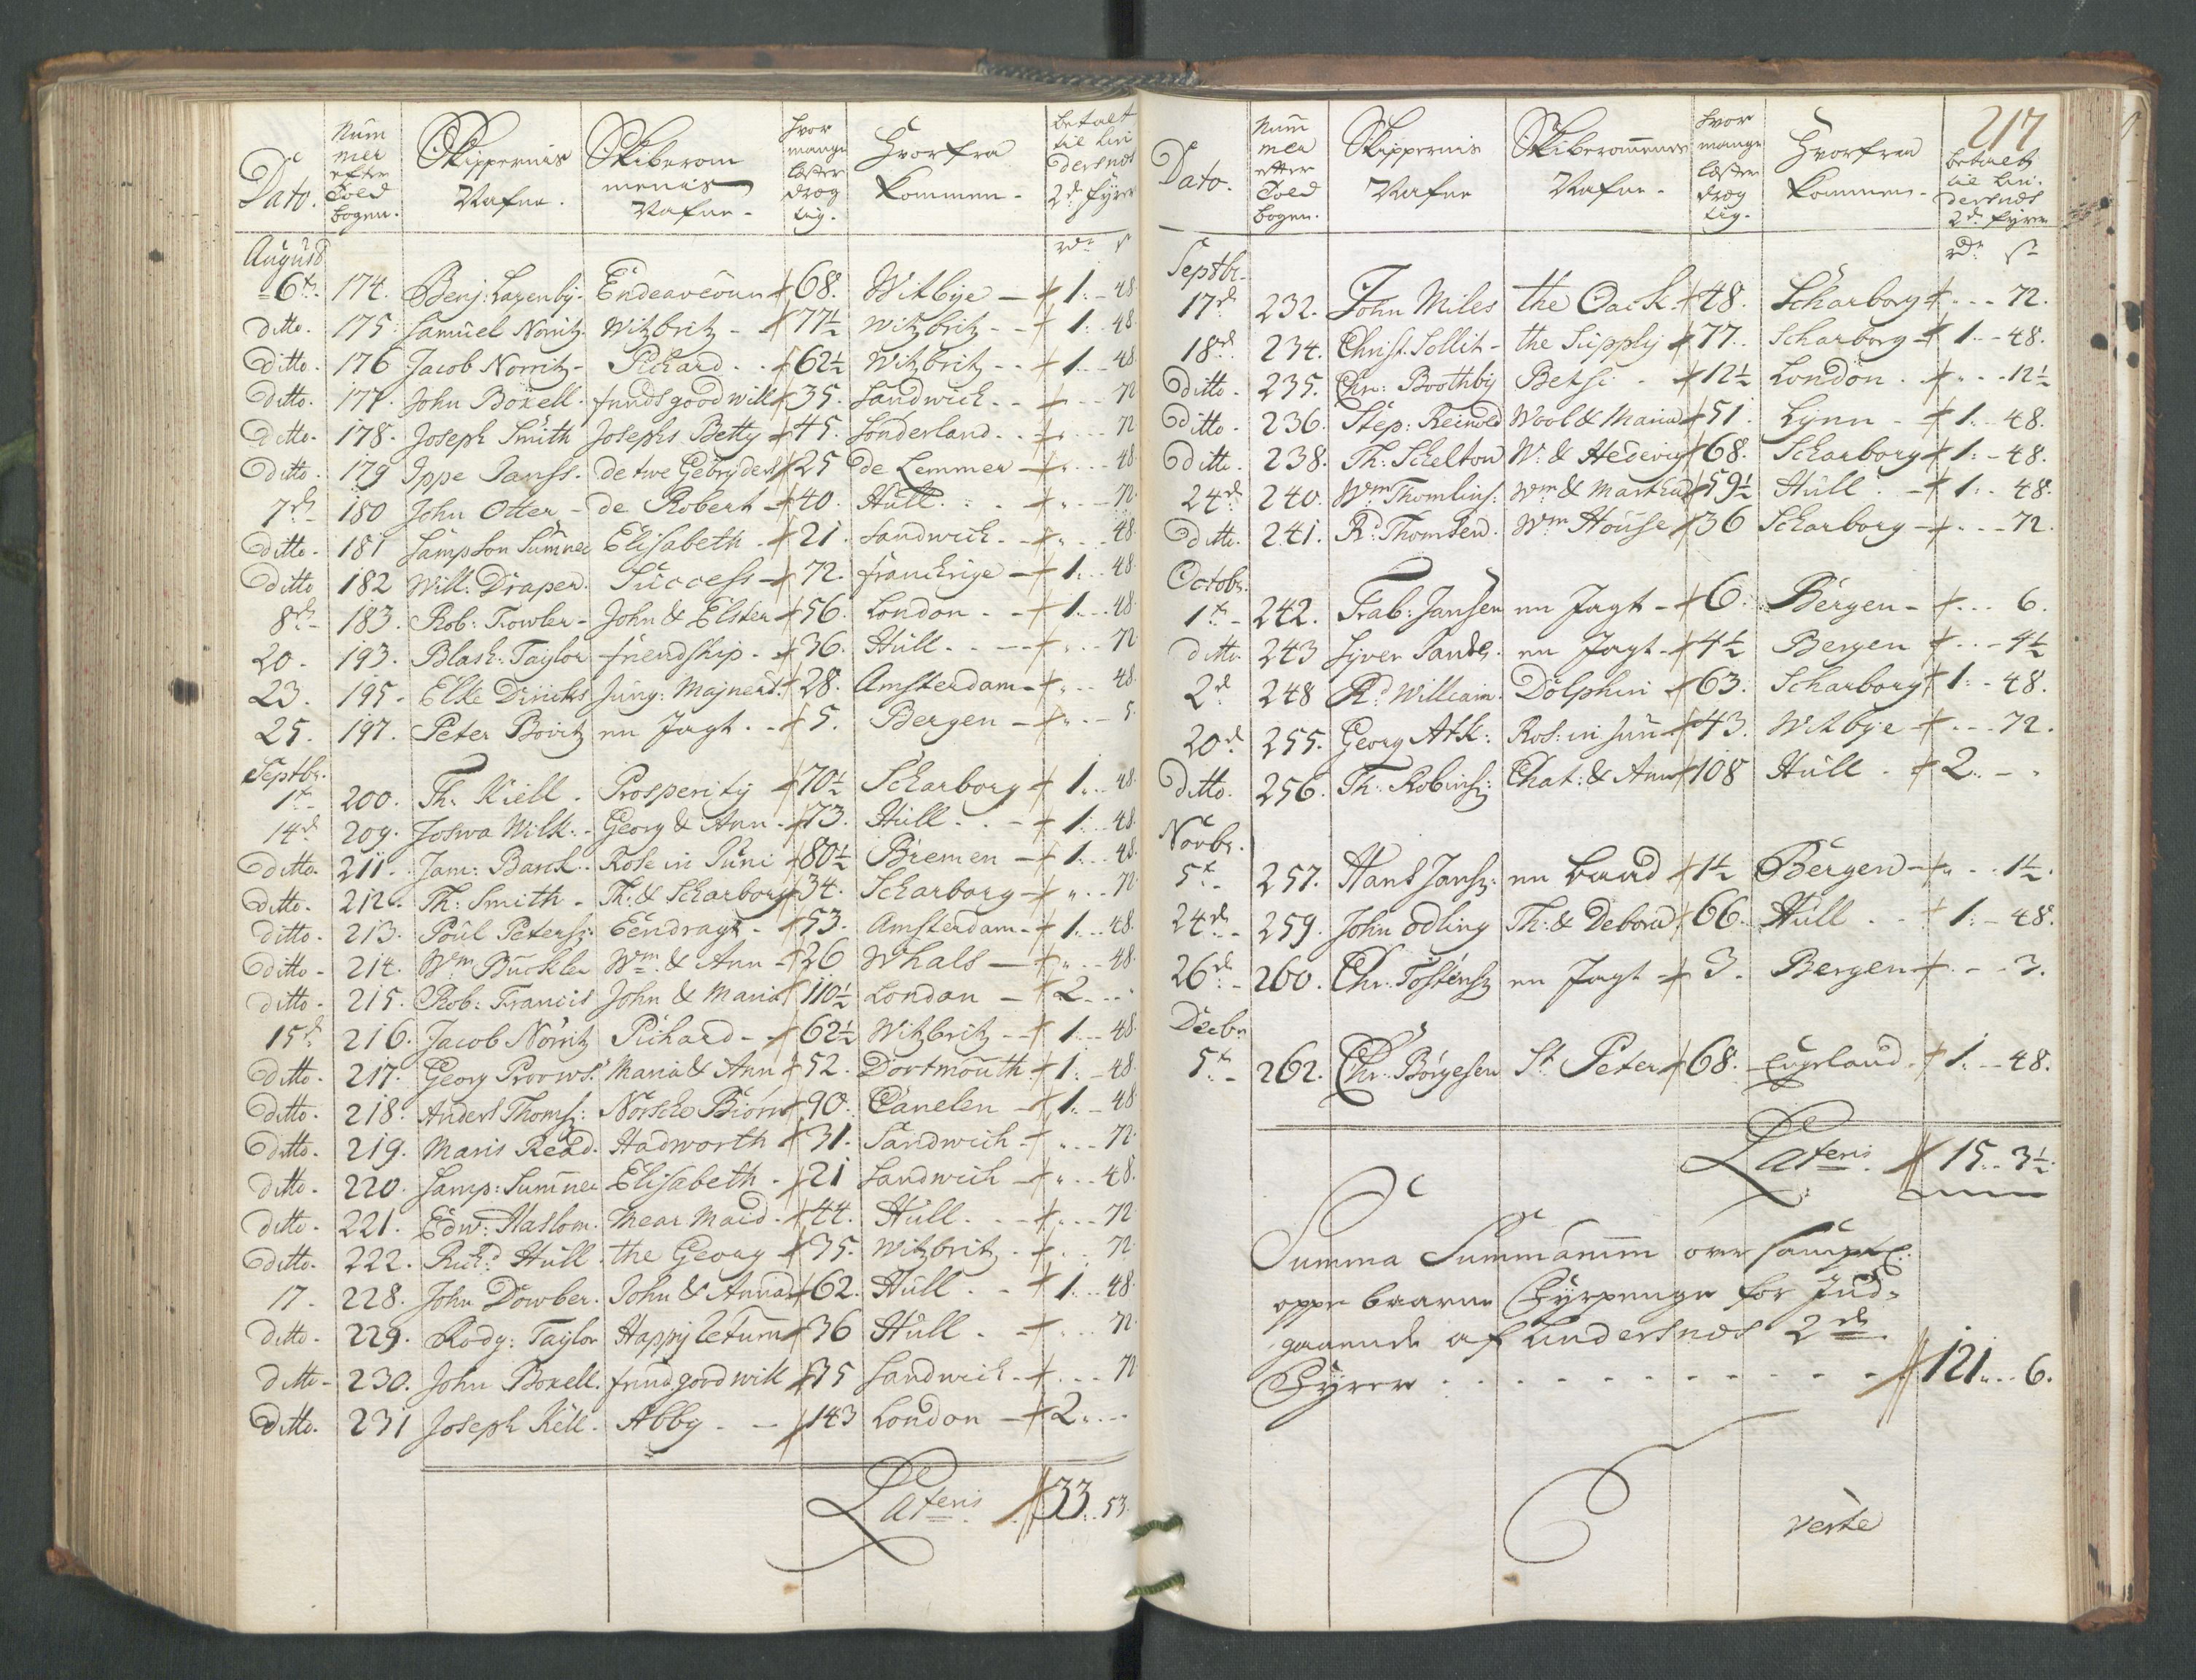 Dato. Nummer efter Told bogen. Skippernis Nafne. Skiberommenis Nafne. Hvor mange Læster drægtig. Hvorfra kommen. betalt til Lindersnæs 2de fyrer
rdr s
August
6t. 174. Benj: Lazenby. Endeavoúr 68. Witbÿe 1. 48
ditto. 175. Samúel Norritz. Witzbritz 77½ Witzbritz 1. 48.
Ditto. 176 Jacob Norritz Richard 62½ Witzbritz 1. 48
Ditto. 177. John Boxell. frinds good will 35. Sandwich 72
Ditto. 178. Joseph Smith Josephs Betty 45. Sonderland 72
Ditto. 179 Ippe Janss. de twe Gebrÿders 25 de Lemmer 48
7de 180 John Otter de Robert 40. Húll 72
Ditto. 181 Sampson Sumner Elisabeth 21. Sandwich 48.
Ditto 182 Will: Draper. Súccess 72. franckrige 1. 48
8de 183. Rob: Fowler John & Ester 56. London 1. 48
20. 193. Blash: Taylor friendship 36. Húll 72
23. 195. Elke Diricks Júng: Majnert. 28. Amsterdam 48
25. 197. Peter Bovitz en Jagt 5. Bergen 5
Septbr.
1t 200. Th. Kiell. Prosperity 70½ Scharborg 1. 48
14d 209. Joswa Wilk. Georg & Ann 73. Húll 1. 48
Ditto. 211. Jam: Bank. Rose in Júni 80½ Bremen 1. 48.
Ditto. 212. Th: Smith Th: & Scharborg 34. Scharborg 72
Ditto. 213. Poúl Petersz: Eendragt 53. Amsterdam 1. 48.
Ditto 214. Wm Búckler Wm & Ann 26 Whals 48.
Ditto. 215. Rob: Francis John & Maria 110½ London 2
15d 216. Jacob Nörritz Richard 62½ Witzbritz 1. 48
Ditto. 217. Georg Proows. Maria & Ann 52. Dortmoúth 1. 48
Ditto. 218. Anders Thomsz: Norsche Biörn 90. Canelen 1. 48
Ditto. 219. Maris Read. Hadworth 31. Sandwich 72
Ditto. 220. Samp: Sumner Elisabeth 21 Sandwich 48.
Ditto. 221. Edw: Haslom. Mear Maid 44. Húll 72
Ditto. 222. Richd Húll. the Georg 35. Witzbritz 72
17. 228. John Dowber. John & Anna 62. Húll 1. 48
Ditto. 229. Rody: Taylor Happy Return 36 Húll 72
Ditto 230. John Boxell. frind good will 35 Sandwich 72
Ditto. 231 Joseph Kell. Abby 143 London 2
Lateris 33. 53.
217
Dato. Nummer efter Told bogen. Skippernis Nafne Skiberommenes Nafne. Hvor mange Læster drægtig. Hvorfra kommen. betalt til Lindersnæs 2de fyrer
rdr s
Septbr.
17d 232. John Miles the Oack 48. Scharborg 72.
18d 234. Christ. Sollit the Súpply 77. Scharborg 1. 48.
Ditto 235. Chr: Boothby Betsi 12½ London 12½
Ditto. 236. Step: Reinold Wool & Maria 51. Lynn 1. 48.
Ditto. 238. Th: Schelton W: & Hedevig 68. Scharborg 1. 48.
24d 240. Wm Thomlins: Wm & Martha 59½ Húll 1. 48.
Ditto. 241. Rd: Thomsen. Wm Hoúse 36 Scharborg 72.
Octobr.
1t 242. Fab: Jansen en Jagt 6. Bergen 6.
ditto 243 Siver Sands. en Jagt 4½ Bergen 4½
2d 248 Rd: Willcain. Dolphin 63. Scharborg 1. 48.
20d 255. Georg Atk: Ros: in Jun 43. Witbye 72.
ditto. 256. Th: Robinsz: Chat: & Ann 108 Húll 2
Novbr.
5t 257. Hans Jansz: en baad 1½ Bergen 1½.
24de 259. John Odling Th: & Debora 66. Húll 1. 48.
26de 260. Chr: Tostensz en Jagt 3. Bergen 3.
Decbr
5t 262. Chr: Börgesen St Peter 68. Engeland 1. 48.
Lateris 15. 3½.
Summa Summarum over samptl:
oppebaarne Fÿrpenge for Ind=
gaaende af Lindersnæs 2de
Fÿrer 121. 6.
verte